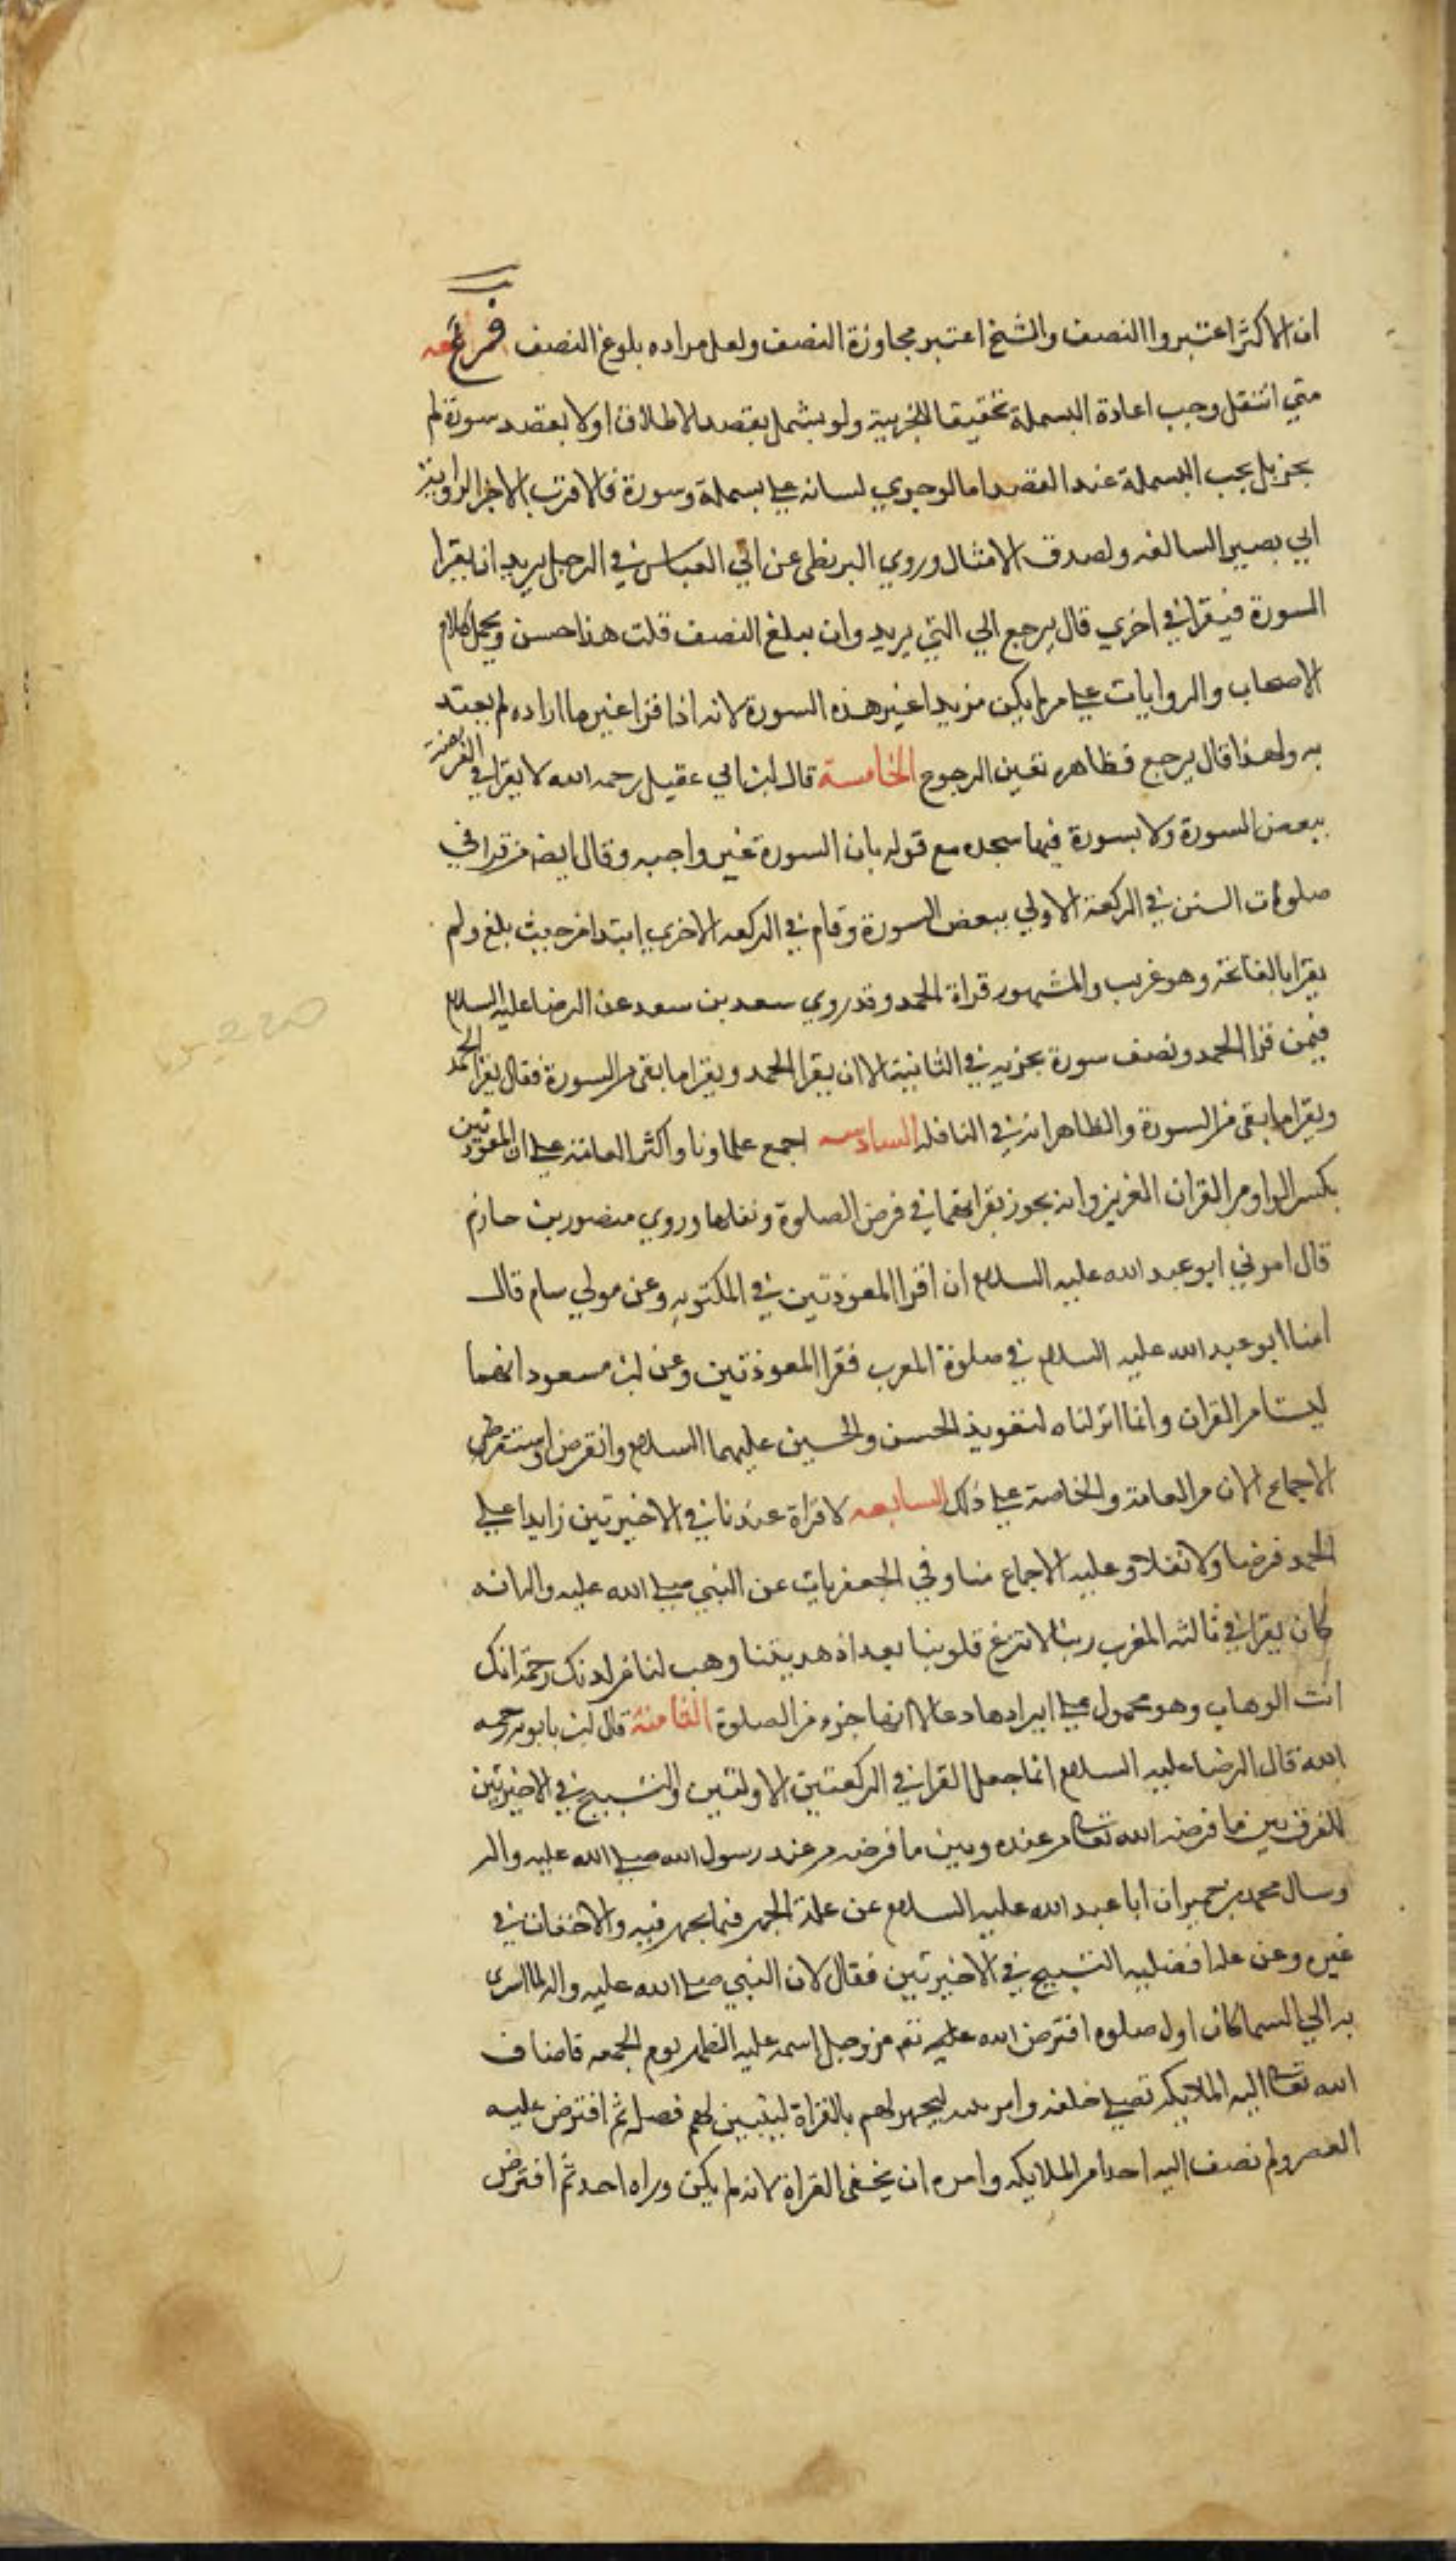 ان الاكثر اعتبروا النصف والشيخ اعتبر مجاوزة النصف ولعل مراده بلوغ النصف فرع
متي انتقل وجب اعادة البسملة تحقيقا للجزيية ولو بسمل بقصد الاطلاق اولا بقصد سورة لم
يجز بل يجب البسملة عند القصد اما لوجري لسانه علي بسملة وسورة فالاقرب الاجزا لرواية
ابي بصير السالفه ولصدق الامتثال وروي البزنطي عن ابي العباس في الرجل يريد ان يقرا
السورة فيقرا في اخري قال يرجع الي التي يريد وان بلغ النصف قلت هذا حسن ويحمل كلام
الاصحاب والروايات علي من لم يكن مريدا غير هذه السورة لانه اذا قرا غير ما اراده لم يعتد
به ولهذا قال يرجع فظاهره تعين الرجوع الخامسة قال ابن ابي عقيل رحمه الله لا يقرا في الفريضة
ببعض السورة ولا بسورة فيها سجده مع قوله بان السورة غير واجبه وقال ايضا من قرا في
صلوات السنن في الركعة الاولي ببعض السورة وقام في الركعه الاخري ابتدا من حيث بلغ ولم
يقرا بالفاتحة وهو غريب والمشهور قراة الحمد وقد روي سعد بن سعد عن الرضا عليه السلام
فيمن قرا الحمد ونصف سورة يجزيه في الثانية الا ان يقرا الحمد ويقرا ما بقي من السورة فقال يقرا الحمد
ويقرا ما بقي من السورة والظاهر انه في النافله السادسه اجمع علماونا واكثر العامة علي ان المعوذتين
بكسر الواو من القران العزيز وانه يجوز بقراءتهما في فرض الصلوة ونفلها وروي منصور بن حازم
قال امرني ابو عبد الله عليه السلام ان اقرا المعوذتين في المكتوبه وعن مولي سام قال
امنا ابو عبد الله عليه السلام في صلوة المغرب فقرا المعوذتين وعن ابن مسعود انهما
ليستا من القران وانما انزلناه لتعويذ الحسن والحسين عليهما السلام وانقرض واستقر
الاجماع الان من العامة والخاصة علي ذلك السابعه لا قراة عندنا في الاخيرتين زايدا علي
الحمد فرضا ولا نفلا وعليه الاجماع منا وفي الجعفريات عن النبي صلي الله عليه واله انه
كان يقرا في ثالثه المغرب ربنا لا تزغ قلوبنا بعد اذ هديتنا وهب لنا من لدنك رحمة انك
انت الوهاب وهو محمول علي ايرادها دعا لا انها جزء من الصلوة الثامنة قال ابن بابويه رحمه
الله قال الرضا عليه السلام انما جعل القرا في الركعتين الاولتين والتسبيح في الاخيرتين
للفرق بين ما فرضه الله تعالي من عنده وبين ما فرضه من عند رسول الله صلي الله عليه واله
وسال محمد بن حمران ابا عبد الله عليه السلام عن علة الجهر فيما يجهر فيه والاخفات في
غيره وعن علة افضليه التسبيح في الاخيرتين فقال لان النبي صلي الله عليه واله لما اسري
به الي السما كان اول صلوه افترض الله عليه عز وجل اسمه عليه الظهر يوم الجمعه فاضاف
الله تعالي اليه الملايكه تصلي خلفه وامر نبيه ليجهر لهم بالقراة ليتبين لهم فضله ثم افترض عليه
العصر ولم تضف اليه احدا من الملايكه وامره ان يخفي القراة لانه لم يكن وراه احد ثم افترض